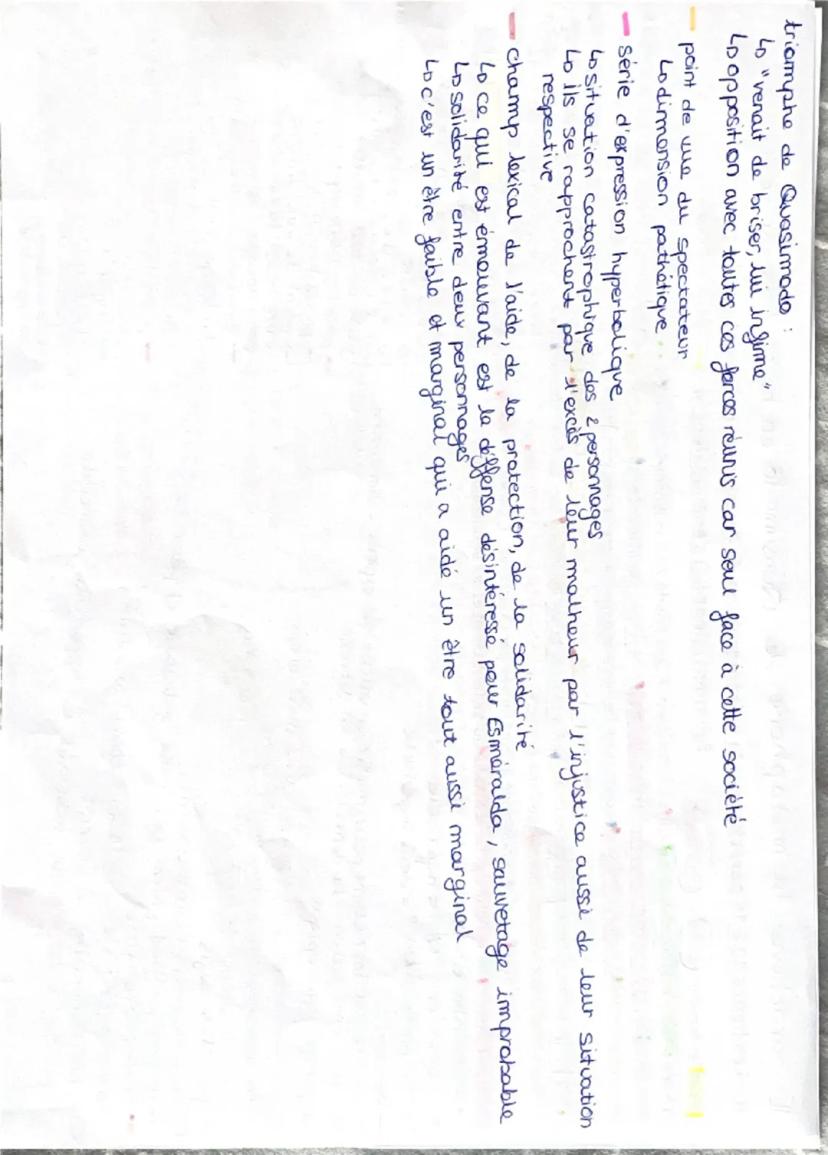 triomphe de Quasimodo :
↳ "venait de briser, lui infirme"
↳ opposition avec toutes ces forces réunis car seul face à cette société
- point de vue du spectateur
↳ dimension pathétique
- série d'expression hyperbolique
↳ situation catastrophique des 2 personnages
↳ ils se rapprochent par l'excès de leur malheur par l'injustice aussi de leur situation
respective
- champ lexical de l'aide, de la protection, de la solidarité
↳ ce qui est émouvant est la déffense désintéressé pour Esméralda, sauvetage improbable
↳ solidarité entre deux personnages
↳ c'est un être faible et marginal qui a aidé un être tout aussi marginal